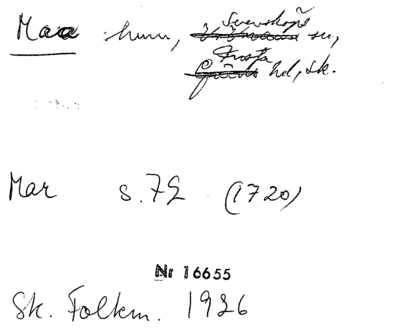 Maa hmn, Svenskops sn,
Frosta hd, Sk.
Mar s. 72 (1720)
Nr 16655
Sk. Folkm. 1936